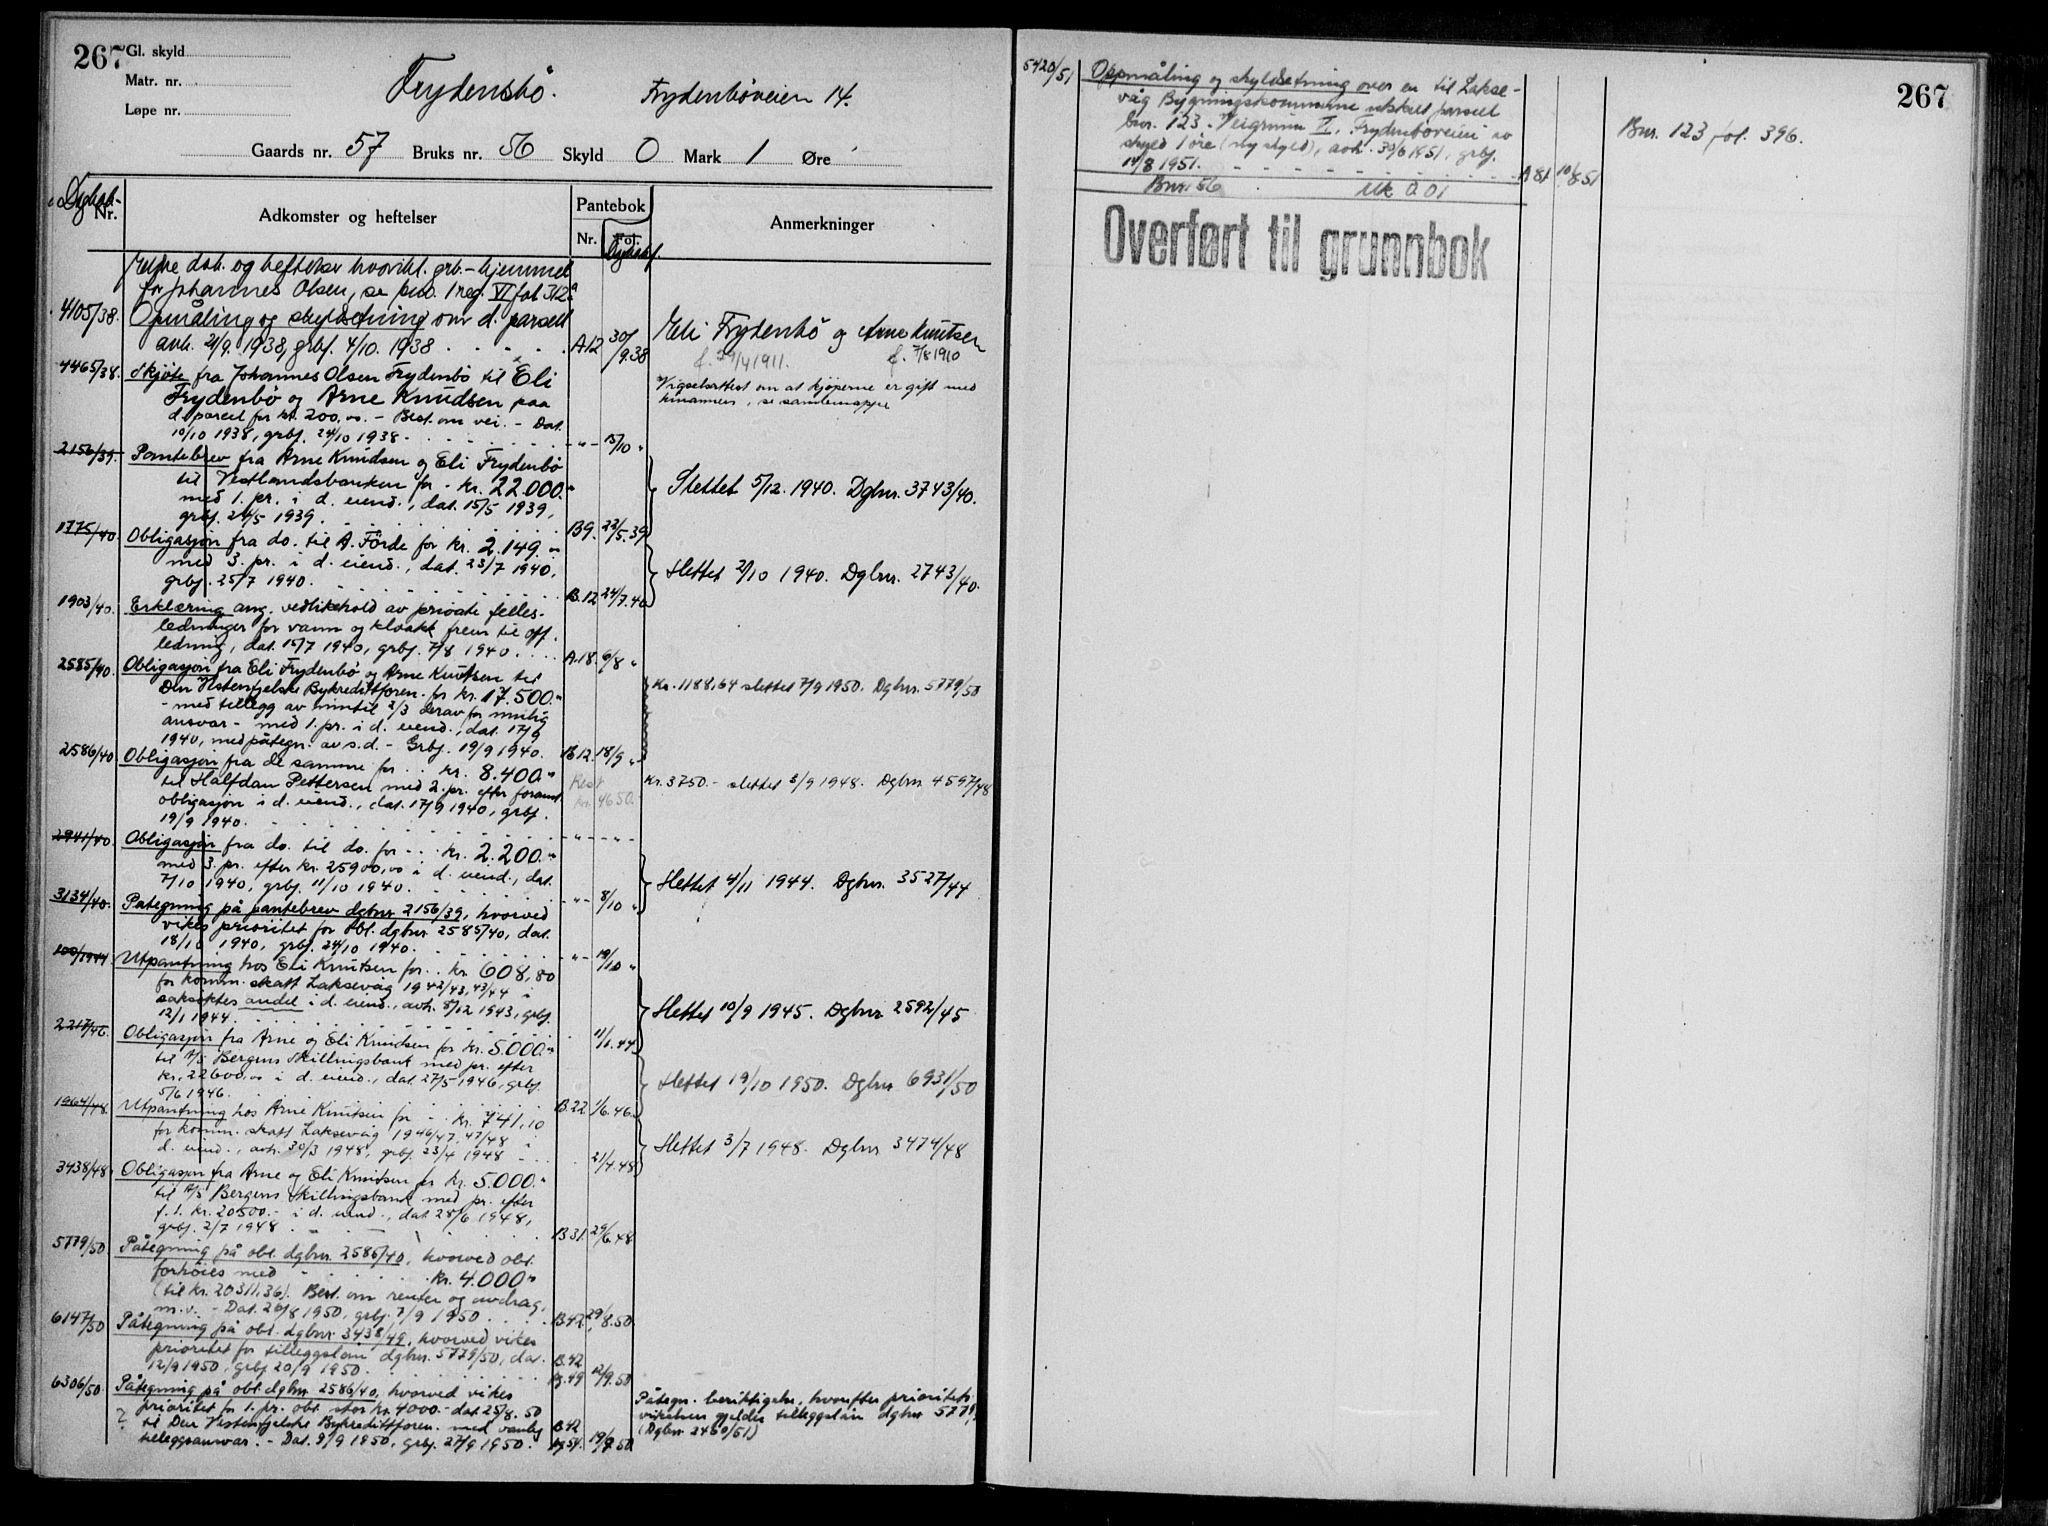 267
Gl. skyld
Matr. nr.
Løpe nr.
Frydensbö.
Frydenböveien 14.
Gaards nr. 57 Bruks nr. 56 Skyld 0 Mark 1 Øre
Dagbok-
Nr.
Adkomster og heftelser
Pantebok
Nr.
Fol.
Dagbokf.
Anmerkninger
Eldre dok. og heftelser hvorikl. grb.-hjemmel
for Johannes Olsen, se reg. VI fol 312a
4105/38. Opmåling og skyldsetning over d. parsell
avh. 21/9. 1938, grbf. 4/10. 1938 A12 30/9.38
Eli Frydenbö og Arne Knutsen
f. 29/4 1911. f. 7/8 1910
4465/38. Skjöte fra Johannes Olsen Frydenbö til Eli
Frydenbö og Arne Knudsen paa
d. parcel for kr. 200,00. - Best. om vei. - Dat.
10/10 1938, grbf. 24/10 1938. - " - 15/10 "
Vigselsattest om at kjøperne er gift med
hinannen, se samlemappe
2156/39. Pantebrev fra Arne Knudsen og Eli Frydenbö
til Vestlandsbanken for kr. 22.000.-
med 1. pr. i d. eiend., dat. 15/5 1939,
grbf. 24/5 1939. B9. 22/5.39
Slettet 5/12. 1940. Dgbnr. 3743/40.
1775/40. Obligasjon fra do. til A. Förde for kr. 2.149.-
med 3. pr. i d. eiend., dat. 23/7 1940,
grbf. 25/7 1940. B.12 24/7.40
Slettet 2/10 1940. Dgbnr. 2743/40.
1903/40. Erklæring ang. vedlikehold av private felles-
ledninger for vann og kloakk frem til off.
ledning, dat. 15/7 1940, grbf. 7/8 1940. A.18. 6/8 "
2585/40. Obligasjon fra Eli Frydenbö og Arne Knutsen til
Den Vestenfjelske Bykredittforen. for kr. 17.500.-
- med tillegg av inntil 2/3 derav for mulig
ansvar - med 1. pr. i d. eiend., dat. 17/9
1940, med påtegn. av s.d. - Grbf. 19/9 1940. B.12. 18/9 "
Kr. 1188,64 slettet 7/9 1950. Dgbnr. 5779/50
2586/40 Obligasjon fra de samme for kr. 8.400.-
til Halfdan Pettersen med 2. pr. efter foranst.
obligasjon i d. eiend., dat. 17/9 1940, grbf.
19/9 1940. - " - - " -
Rest
kr. 4650.-
Kr. 3750.- slettet 3/9 1948. Dgbnr 4597/48
2941/40. Obligasjon fra do. til do. for kr. 2.200.-
med 3. pr. efter kr. 25900,00 i d. eiend., dat.
7/10 1940, grbf. 11/10 1940. - " - 8/10 "
Slettet 4/11 1944. Dgbnr. 3527/44
3134/40. Påtegning på pantebrev dgbnr 2156/39, hvorved
vikes prioritet for obl. dgbnr 2585/40, dat.
18/10 1940, grbf. 24/10 1940. - " - 19/10 "
100/1944 Utpantning hos Eli Knutsen for kr 608,80
for komm. skatt Laksevåg 1942/43, 43/44 i
saksøktes andel i d. eiend., avh. 8/12 1943, grbf.
12/1 1944. 11/1.44
Slettet 10/9 1945. Dgbnr 2592/45
2217/46. Obligasjon fra Arne og Eli Knudsen for kr. 5.000.-
til A/S Bergens Skillingsbank med pr. efter
kr. 22600,00 i d. eiend., dat. 27/5 1946, grbf.
5/6 1946. B.22. 1/6.46.
Slettet 19/10 1950. Dgbnr 6931/50
1964/48. Utpantning hos Arne Knutsen for kr. 741,10
for komm. skatt Laksevåg 1946/47, 47/48 i
d. eiend., avh. 30/3 1948, grbf. 23/4 1948 21/4.48
Slettet 3/7 1948. Dgbnr 3474/48
3438/48 Obligasjon fra Arne og Eli Knutsen for kr. 5.000.-
til A/S Bergens Skillingsbank med pr. efter
f.t. kr. 20500.- i d. eiend., dat. 28/6 1948,
grbf. 2/7 1948 B31. 29/6.48
5779/50 Påtegning på obl. dgbnr. 2585/40, hvorved obl.
forhöies med kr. 4.000.-
(til kr. 20311,36). Best. om renter og avdrag,
m.v. - Dat. 26/8 1950, grbf. 7/9 1950 B42 29/8.50
6147/50 Påtegning på obl. dgbnr 3438/49, hvorved vikes
prioritet for tilleggslån dgbnr. 5779/50, dat.
12/9 1950, grbf 20/9 1950. B.42 Bg.49 12/9.50
6306/50. Påtegning på obl. dgbnr 2586/40, hvorved vikes
prioritet for 1. pr. obl. stor kr. 4000.- dat. 25/8. 50
? til Den Vestenfjelske Bykredittforen. med vanlig
tilleggsansvar. - Dat. 9/9 1950, grbf. 27/9 1950. B42 Bg54. 19/9.50
Påtegn. beriktigelse, hvorefter prioritets-
vikelsen gjelder tilleggslån dgbnr 5779.
(Dgbnr 2450/51)
267
5420/51 Oppmåling og skyldsetning over en til Lakse-
våg Bygningskommune utskilt parsell
bnr. 123 "Veigrunn VI, Frydenböveien" av
skyld 1 öre (ny skyld), avh. 30/6 1951, grbf.
14/8 1951. A 81 10/8.51
Bnr. 123 fol. 396.
Bnr. 56 Mk 0.01
Overført til grunnbok